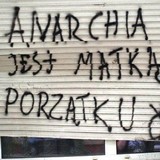 ANARCHIA
JEST MATKĄ
PORZĄTKU